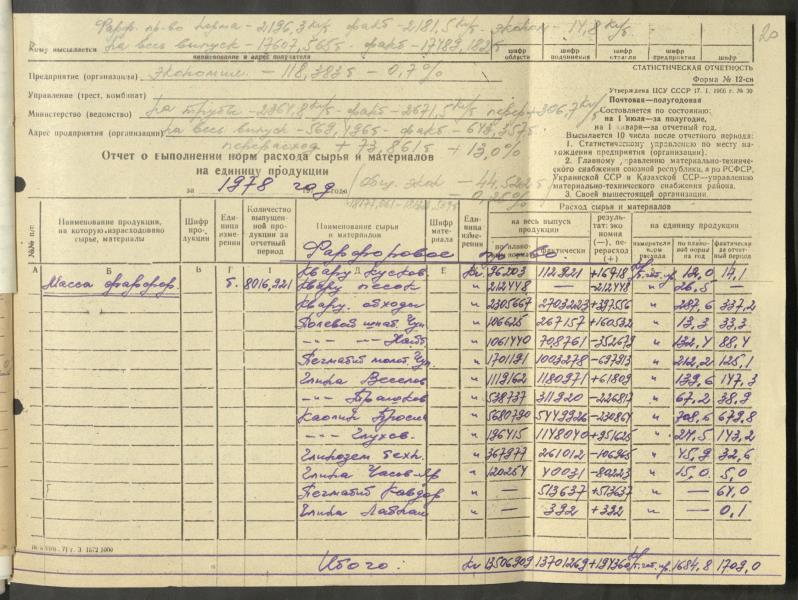 Фарф. пр-во норма – 2196,3 кг/т факт – 2181,5 кг/т эконом – 14,8 кг/т
20
Кому высылается На весь выпуск – 17607,565т факт – 17489,182т
наименование и адрес получателя
шифр области шифр подчинения шифр отрасли шифр предприятия шифр
Предприятие (организация) экономия – 118,383т – 0,7%
Управление (трест, комбинат)
Министерство (ведомство) На трубы – 2364,8 кг/т – факт – 2671,5 кг/т перер +306,7 кг/т
Адрес предприятия (организации) На весь выпуск – 569,496т факт – 643,357т
перерасход + 73,861т + 13,0%
СТАТИСТИЧЕСКАЯ ОТЧЕТНОСТЬ
Форма № 12-сн
Утверждена ЦСУ СССР 17. I. 1966 г. № 30
Почтовая—полугодовая
Составляется по состоянию:
на 1 июля—за полугодие,
на 1 января—за отчетный год.
Высылается 10 числа после отчетного периода:
1. Статистическому управлению по месту нахождения предприятия (организации).
2. Главному управлению материально-технического снабжения союзной республики, а по РСФСР,
Украинской ССР и Казахской ССР—управлению
материально-технического снабжения района.
3. Своей вышестоящей организации.
Отчет о выполнении норм расхода сырья и материалов
на единицу продукции
за 1978 год
Общ. экон – 44,522т
– 0,25%
№№ п/п
Наименование продукции, на которую израсходовано сырье, материалы
Шифр продукции
Единица измерения
Количество выпущенной продукции за отчетный период
Наименование сырья и материалов
Шифр материала
Единица измерения
Расход сырья и материалов
на весь выпуск продукции
по плановой норме
фактически
результат: экономия (—), перерасход (+)
на единицу продукции
измерители нормы расхода
по плановой норме на год
фактически за отчетный период
Фарфоровое пр-во.
А Б В Г 1 Д Е
Масса фарфор. т. 8016,921 Кварц кусков. кг 96203 112921 +16718 кг/т.гот.пр. 12,0 14,1
Кварц песок " 212448 — –212448 " 26,5 —
Кварц. отходы " 2305667 2703223 +397556 " 287,6 337,2
Полевой шпат. Чуп. " 106625 267157 +160532 " 13,3 33,3
—"— —"— " 1061440 708761 –352679 " 132,4 88,4
Пегматит молот. Чуп. " 1701191 1003278 –697913 " 212,2 125,1
Глина Веселов " 1119162 1180971 +61809 " 139,6 147,3
—"— " 538737 311920 –226817 " 67,2 38,9
Каолин Просян " 5680790 5449926 –230864 " 708,6 679,8
—"— Глухов. " 196415 1148040 +951625 " 24,5 143,2
Глинозем техн. " 367977 261012 –106965 " 45,9 32,6
Глина Часов-Яр " 120254 40031 –80223 " 15,0 5,0
Пегматит Ковдор " — 513637 +513637 " — 64,0
Глина " — 392 +392 " — 0,1
Итого: кг 13506909 13701269 +194360 кг/т.гот.пр. 1684,8 1709,0